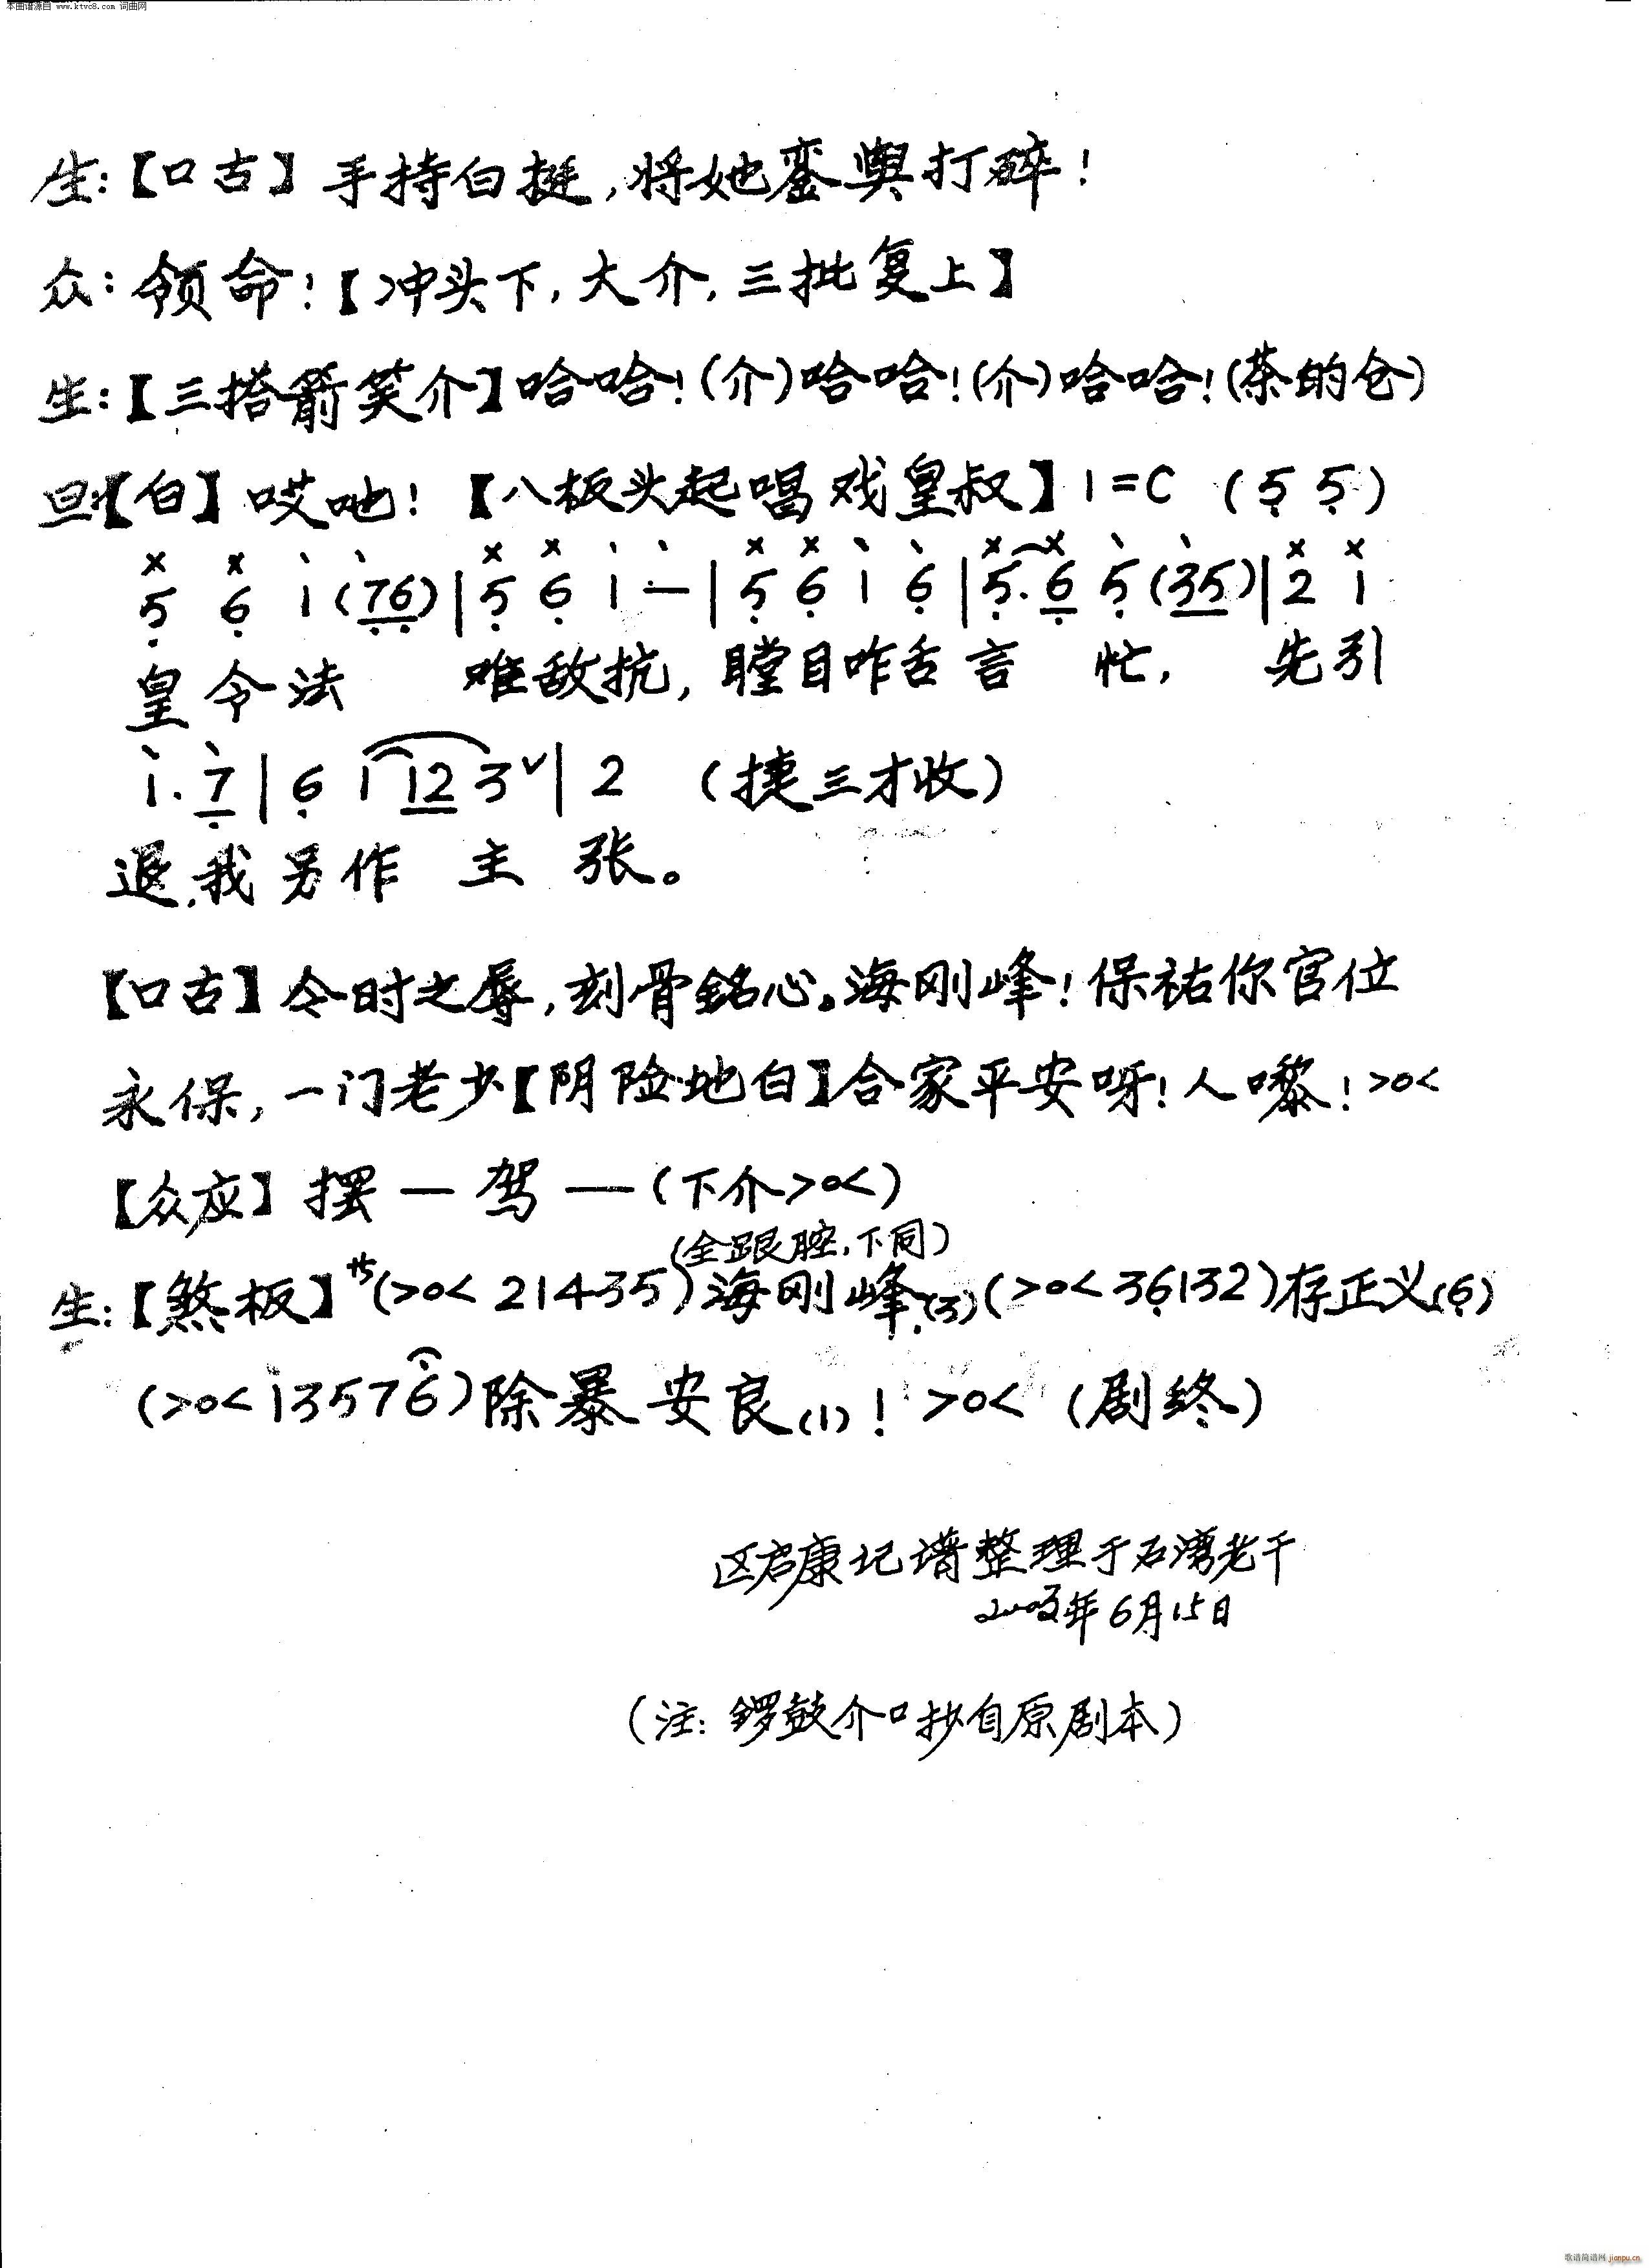 本曲谱源自 www.ktvc8.com 词曲网
生:【口古】手持白挺,将她銮舆打碎!
众:领命!【冲头下,大介,三批复上】
生:【三搭箭笑介】哈哈!(介)哈哈!(介)哈哈!(茶的仓)
旦:【白】哎吔!【八板头起唱戏皇叔】1=C (5̣ 5̣)
× × 丶 丶 × × 丶 丶 × × 丶 丶 × × 丶 丶 × ×
5̣ 6̣ 1 (7̣6̣) | 5̣ 6̣ 1 — | 5̣ 6̣ 1 6̣ | 5̣. 6̣ 5̣ (35) | 2 1
皇令法 难敌抗,瞠目咋舌言 忙, 先引
丶 丶
1. 7̣ | 6̣ 1 12 3 ˅ | 2 (捷三才收)
退,我另作 主 张。
【口古】今时之辱,刻骨銘心。海刚峰!保祐你官位
永保,一门老少【阴险地白】合家平安呀!人嚟!>o<
【众应】摆一驾一(下介>o<)
(全跟腔,下同)
生:【煞板】(>o< 21435)海刚峰(3)(>o< 36̣132)存正义(6̣)
(>o< i3576)除暴安良(1)!>o< (剧终)
区启康记谱整理于石湾老干
年6月15日
(注:锣鼓介口抄自原剧本)
歌谱简谱网 jianpu.cn